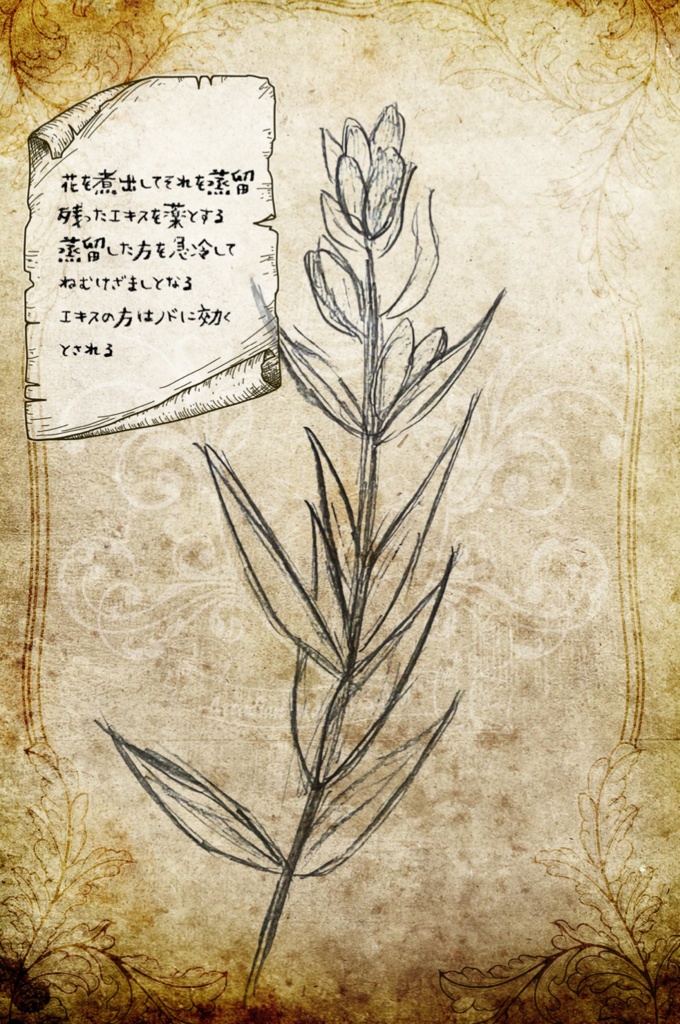 花を煮出してそれを蒸留
残ったエキスを薬とする
蒸留した方を急冷して
ねむけざましとなる
エキスの方はノドに効く
とされる